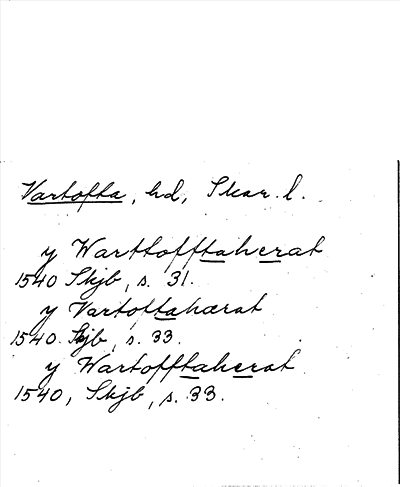 Vartofta, hd, Skar. l.
y Warttofftaherat
1540 Skjb, s. 31.
y Vartoftahærat
1540. Skjb, s. 33.
y Wartofftaherat
1540, Skjb, s. 33.